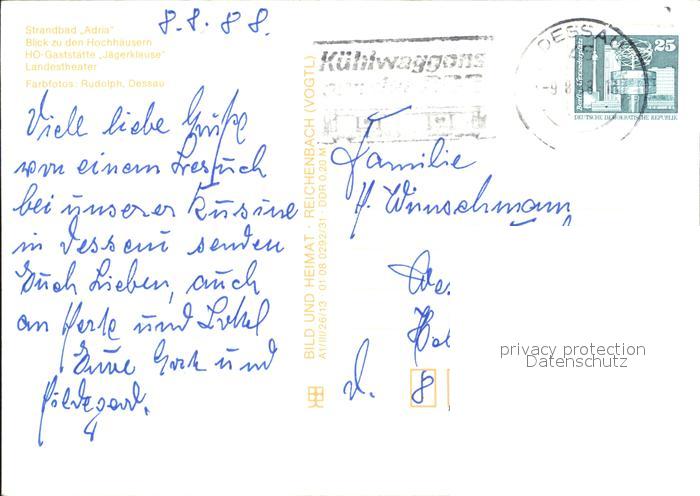 8.8.88.
Strandbad „Adria"
Blick zu den Hochhäusern
HO-Gaststätte „Jägerklause"
Landestheater
Farbfotos: Rudolph, Dessau
Viele liebe Grüße
von einem Besuch
bei unserer Kusine
in Dessau senden
Euch Lieben, auch
an Herta und
Eure und
Hildegard.
BILD UND HEIMAT · REICHENBACH (VOGTL)
A1/III/26/13 01 08 0292/31 DDR 0,20 M
Kühlwaggons
DESSAU
-9.8.
25
DEUTSCHE DEMOKRATISCHE REPUBLIK
Familie
H. Wünschmann
We
8
privacy protection
Datenschutz